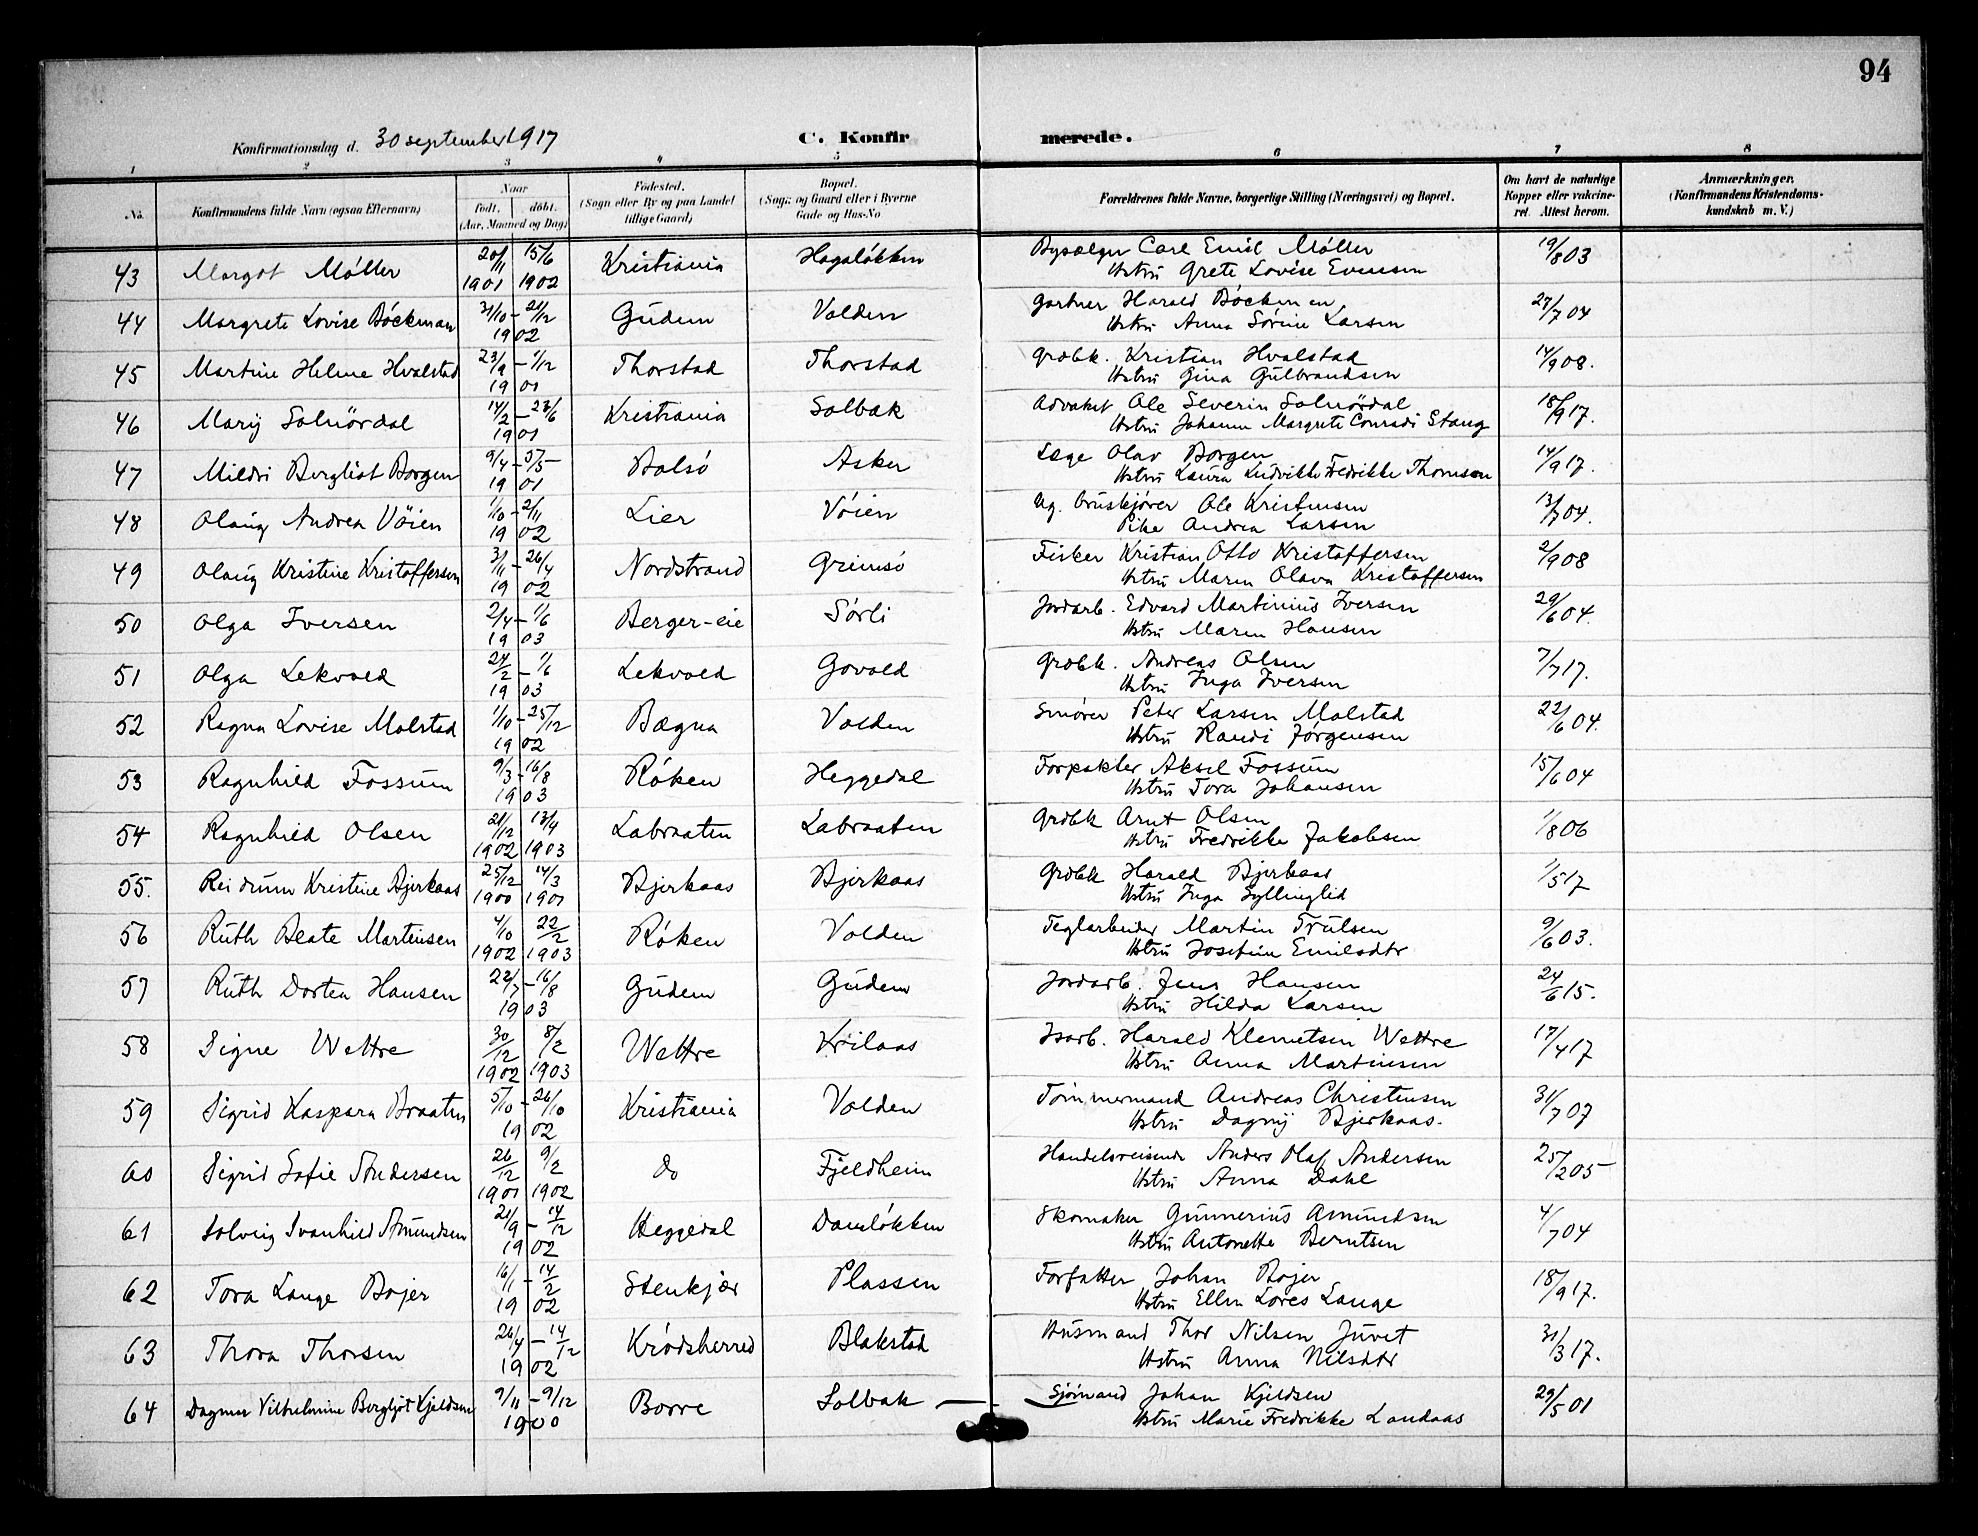 94
Konfirmationsdag d. 30 september 1917
C. Konfirmerede.
1 2 3 4 5 6 7 8
No. Konfirmandens fulde Navn (ogsaa Efternavn) Naar født, døbt. (Aar, Maaned og Dag) Fødested. (Sogn eller By og paa Landet tillige Gaard) Bopæl. (Sogn og Gaard eller i Byerne Gade og Hus-No Forældrenes fulde Navne, borgerlige Stilling (Næringsvei) og Bopæl. Om havt de naturlige Kopper eller vakcineret. Attest herom. Anmærkninger. (Konfirmandens Kristendomskundskab m. V.)
43 Margot Møller 20/11 1901 15/6 1902 Kristiania Hagaløkken Bysælger Carl Emil Møller 19/8 03
Hstru Grete Lovise Evensen
44 Margrete Lovise Bøckman 31/10 - 21/12 1902 Gudem Volden Gartner Harald Bøckman 27/7 04
Hstru Anna Sørine Larsen
45 Martine Helene Hvalstad 23/9 - 1/12 1901 Thorstad Thorstad Grdbk. Kristian Hvalstad 14/9 08.
Hstru Gina Gulbrandsen
46 Mary Solnørdal 14/2 - 23/6 1901 Kristiania Solbak Advokat Ole Severin Solnørdal 18/9 17.
Hstru Johanne Margrete Conradi Stang
47 Mildri Bergliot Borgen 9/4 - 5/5 1901 Bolsø Asker Læge Olav Borgen 14/9 17.
Hstru Laura Ludvikke Fredrikke Thomsen
48 Olaug Andrea Vøien 1/10 - 2/11 1902 Lier Vøien Ug. bruskjører Ole Kristensen 13/7 04.
Pike Andrea Larsen
49 Olaug Kristine Kristoffersen 3/11 - 26/4 1902 Nordstrand Grimsø Fisker Kristian Otto Kristoffersen 2/9 08
Hstru Maren Olava Kristoffersen
50 Olga Iversen 2/4 - 1/6 1903 Berger-eie Sørli Jordarb. Edvard Martinius Iversen 29/6 04.
Hstru Maren Hansen
51 Olga Lekvold 24/2 - 1/6 1903 Lekvold Govold Grdbk. Andreas Olsen 7/7 17.
Hstru Inga Iversen
52 Ragna Lovise Molstad 1/10 - 25/12 1902 Bægna Volden Smører Peter Larsen Molstad 22/6 04.
Hstru Randi Jørgensen
53 Ragnhild Fossum 9/3 - 16/8 1903 Røken Heggedal Forpakter Aksel Fossum 15/6 04
Hstru Tora Johansen
54 Ragnhild Olsen 21/12 1902 13/4 1903 Labraaten Labraaten Grdbk Arnt Olsen 1/8 06
Hstru Fredrikke Jakobsen
55. Reidrun Kristine Bjerkaas 25/12 1900 14/3 1901 Bjerkaas Bjerkaas Grdbk Harald Bjerkaas 1/5 17
Hstru Inga Gyllinglid
56 Ruth Beate Martinsen 4/10 1902 22/2 1903 Røken Volden Teglarbeider Martin Trulsen 9/6 03.
Hstru Josefine Emilsdtr
57 Ruth Dortea Hansen 22/7 - 16/8 1903 Gudem Gudem Jordarb. Jens Hansen 24/6 15.
Hstru Hilda Larsen
58 Signe Wettre 30/12 1902 8/2 1903 Wettre Krilaas Isarb. Harald Klemetsen Wettre 17/4 17
Hstru Anna Martinsen
59 Sigrid Kaspara Braaten 5/10 - 26/10 1902 Kristiania Volden Tømmermand Andreas Christensen 31/7 07
Hstru Dagny Bjerkaas.
60 Sigrid Sofie Andersen 26/12 1901 9/2 1902 Do Fjeldheim Handelsreisende Anders Olaf Andersen 25/2 05
Hstru Anna Dahl
61 Solveig Svanhild Amundsen 21/9 - 14/12 1902 Heggedal Damløkken Skomaker Gunnerius Amundsen 4/7 04
Hstru Antonette Berntsen
62 Tora Lange Bojer 16/1 - 14/2 1902 Stenkjær Plassen Forfatter Johan Bojer 18/9 17.
Hstru Ellen Lores Lange
63 Thora Thorsen 26/4 - 14/12 1902 Krødsherred Blakstad Husmand Thor Nilsen Juvet 31/3 17.
Hstru Anna Nilsdtr
64 Dagmar Vilhelmine Bergljot Kjeldsen 9/11 - 9/12 1900 Borre Solbak Sjømand Johan Kjeldsen 29/5 01
Hstru Marie Fredrikke Landaas